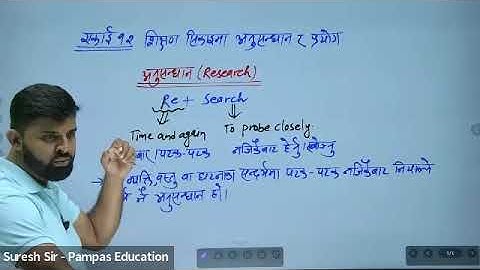 एकाई १२ शिक्षण सिकाइमा अनुसन्धान र प्रयोग
अनुसन्धान (Research)
Re + Search
Time and again To probe closely
बार / पटक-पटक नजिकबाट हेर्नु / खोज्नु
व्यक्ति, वस्तु वा घटनाका सन्दर्भमा पटक-पटक नजिकबाट नियाल्ने
नै अनुसन्धान हो।
Suresh Sir - Pampas Education
1/1